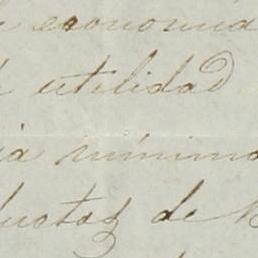 economia
utilidad
minima
cuotas de